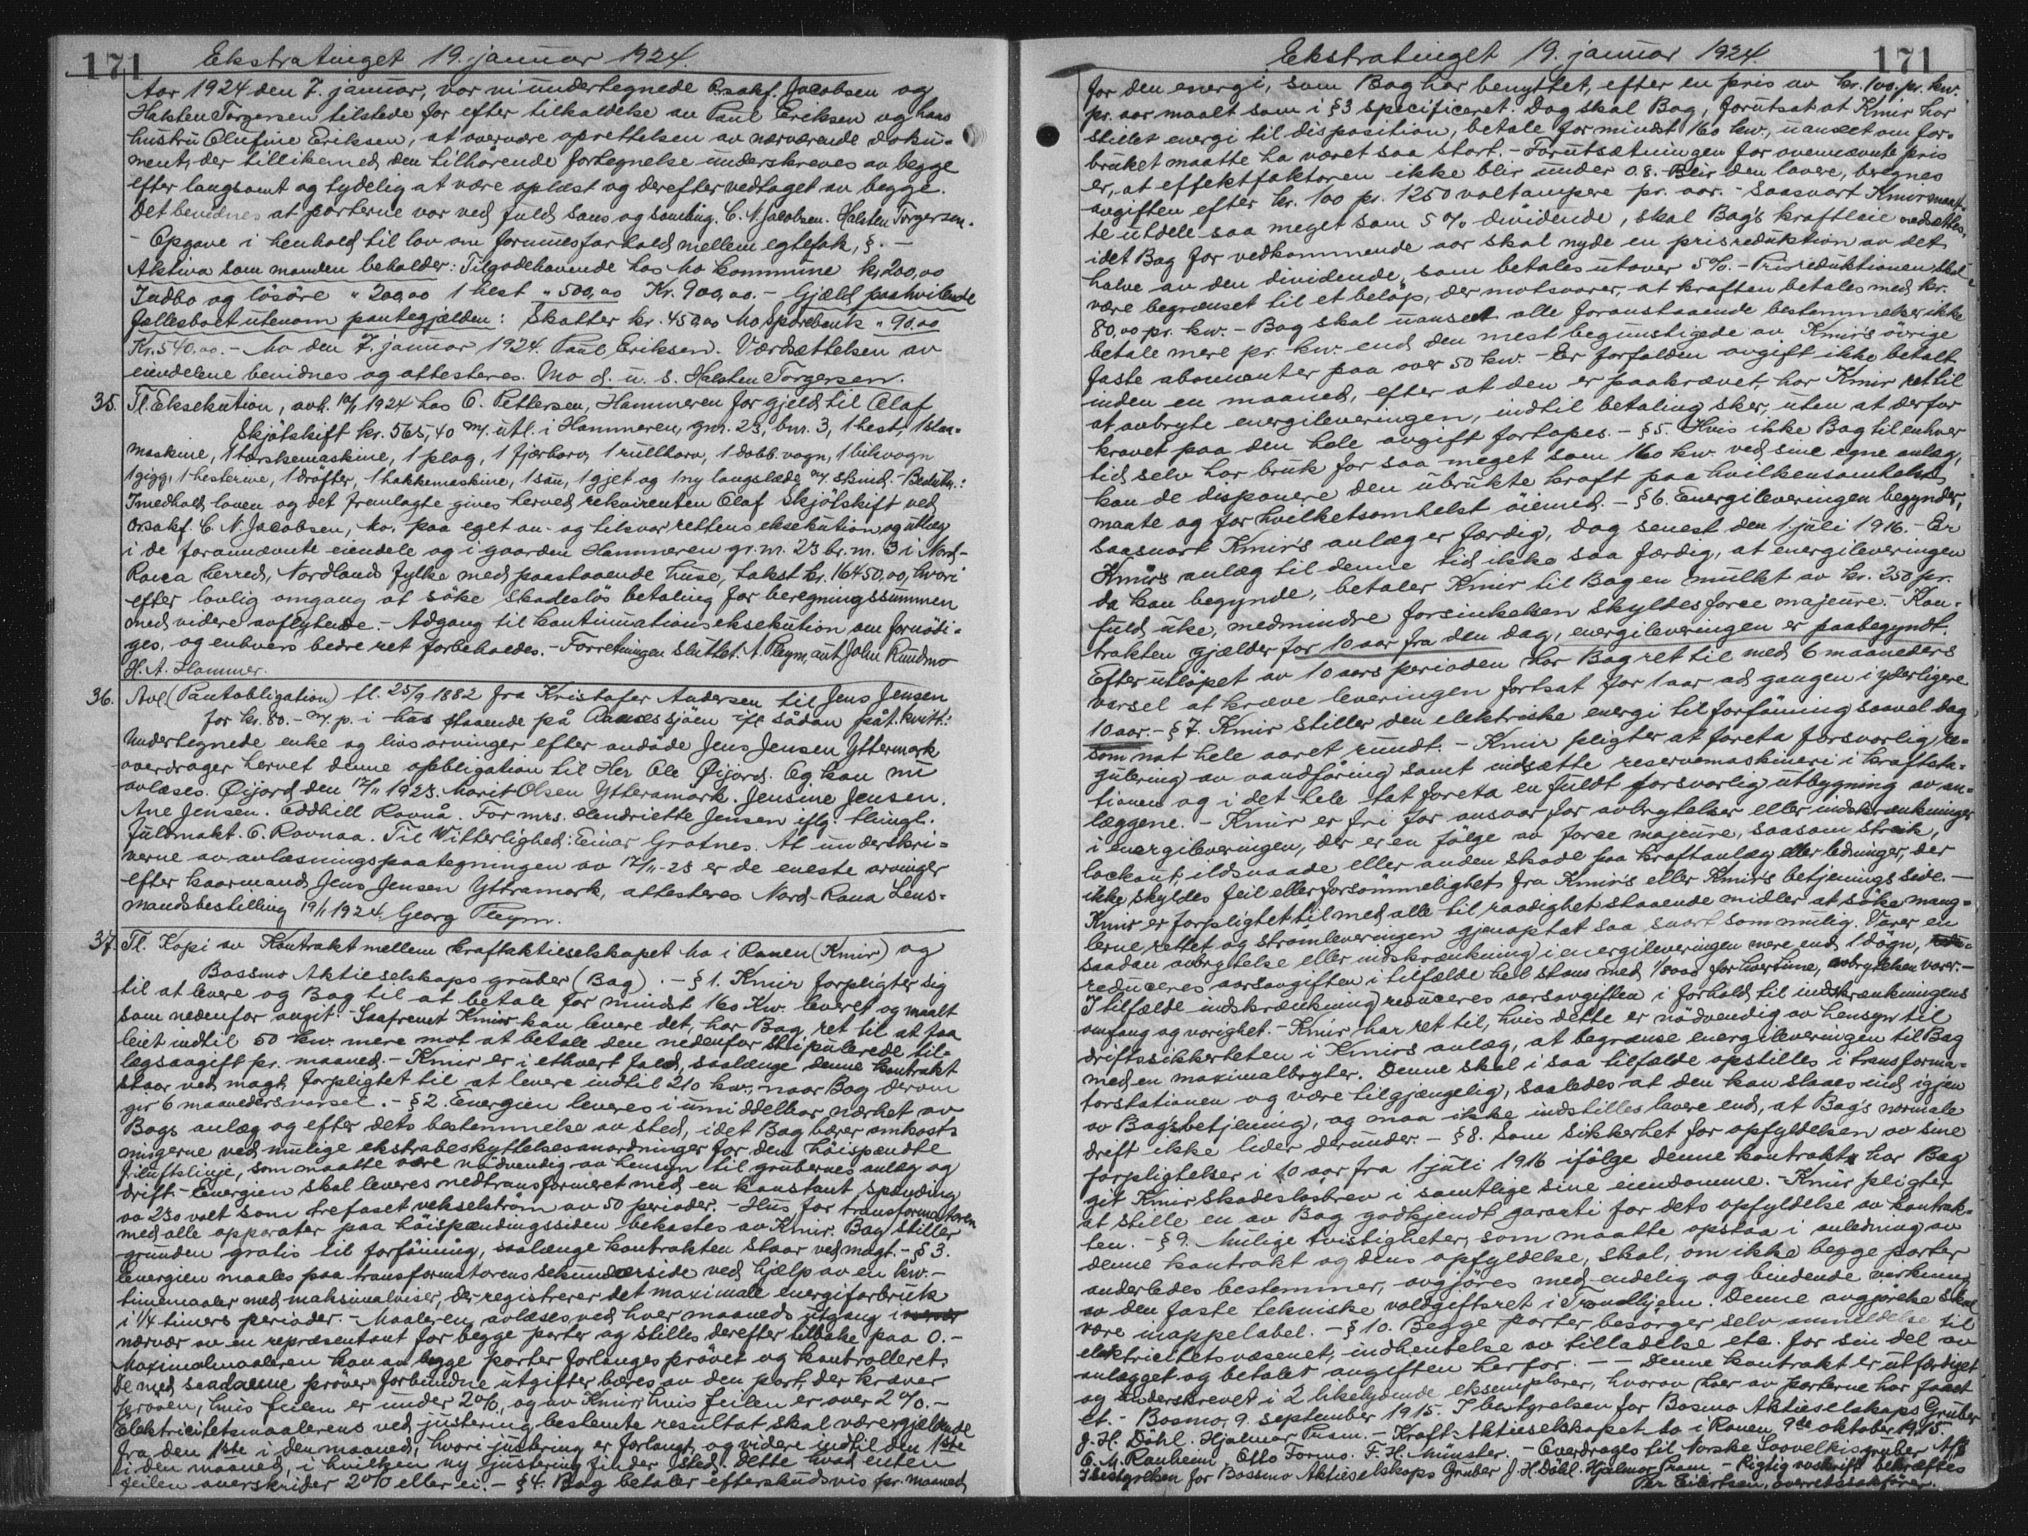 171 Ekstratinget 19. januar 1924.
Aar 1924 den 7. januar, var vi undertegnede O.sakf. Jacobsen og
Halsten Torgersen tilstede for efter tilkaldelse av Paul Eriksen og hans
hustru Olufine Eriksen, at overvære oprettelsen av nærværende doku-
ment, der tillikemed den tilhörende fortegnelse underskreves av begge
efter langsomt og tydelig at være oplæst og derefter vedtaget av begge.
Det bevidnes at parterne var ved fuld sans og samling. C. N. Jacobsen. Halsten Torgersen.
- Opgave i henhold til lov om formuesforhold mellem egtefolk, §. -
Aktiva som manden beholder: Tilgodehavende hos Mo kommune kr. 200,00
Indbo og lösöre " 200,00 1 hest " 500,00 Kr. 900,00. - Gjæld paahvilende
fællesboet utenom pantegjælden: Skatter kr. 450,00 Mo Sparebank " 90,00
Kr. 540,00. - Mo den 7. januar 1924. Paul Eriksen. Værdsættelsen av
eiendelene bevidnes og attesteres. Mo d. u. s. Halsten Torgersen.
35. Tl. Eksekution, avh. 10/1 1924 hos O. Pettersen, Hammeren for gjeld til Olaf
Skjötskift kr. 565,40 m. utl. i Hammeren, gnr. 23, bnr. 3, 1 hest, 1 slaa-
maskine, 1 tærskemaskine, 1 plog, 1 fjærharv, 1 rullharv, 1 dobb. vogn, 1 hhvogn
1 gigg, 1 hesterive, 1 dröfter, 1 hakkemaskine, 1 sau, 1 gjet og 1 ny langslæde m. skind. - Beslutn.:
I medhold loven og det fremlagte gives herved rekvirenten Olaf Skjötskift ved
orsakf. C. N. Jacobsen, Mo, paa eget an- og tilsvar rettens eksekution og utlæg
i de forannævnte eiendele og i gaarden Hammeren gr. nr. 23 br. nr. 3 i Nord-
Rana herred, Nordlands fylke med paastaaende huse, takst kr. 16450,00, hvori
efter lovlig omgang at söke skadeslös betaling for beregningssummen
med videre avflytende. - Adgang til kontinuationseksekution om fornöti-
ges, og enhvers bedre ret forbeholdes. - Forretningen sluttet. A. Pleym, aut John Rundmo
H. A. Hammer.
36. Avl. (Pantobligation) tl. 25/9 1882 fra Kristofer Andersen til Jens Jensen
for kr. 80. - m. p. i hus staaende på Aanessjöen ifl. sådan påt. kvitt.:
Undertegnede enke og livsarvinger efter avdöde Jens Jensen Yttermark
overdrager hervet denne obbligation til Her Ole Öijord. Og kan nu
avlæses. Öijord den 17/11 1923. Marit Olsen Ytteramark. Jensine Jensen.
Ane Jensen. Eddkill Rovnå. For mrs. Hendriette Jensen iflg. thingl.
fuldmakt. E. Rovnaa. Til Witterlighed: Einar Grafnes. At underskri-
verne av avlæsningspaategningen av 17/11-23 er de eneste arvinger
efter kaarmand Jens Jensen Yttramark, attesteres Nord-Rana Lens-
mandsbestilling 19/1 1924. Georg Pleym.
37. Tl. Kopi av Kontrakt mellem kraftaktieselskapet Mo i Ranen (Kmir) og
Bossmo Aktieselskaps gruber (Bag). - § 1. Kmir forpligter sig
til at levere og Bag til at betale for mindst 160 Kw. levert og maalt
som nedenfor angit. Saafremt Kmir kan levere det, har Bag ret til at faa
leiet indtil 50 kw. mere mot at betale den nedenfor stipulerede til-
lægsavgift pr. maaned. - Kmir er i ethvert fald, saalænge denne kontrakt
staar ved magt, forpligtet til at levere indtil 210 kw., naar Bag derom
gir 6 maanedersvarsel. - § 2. Energien leveres i umiddelbar nærhet av
Bags anlæg og efter dets bestemmelse av sted, idet Bag bærer omkost-
ningerne ved mulige ekstrabeskyttelsesanordninger for den höispændte
friluftslinje, som maatte være nödvendig av hensyn til grubernes anlæg og
drift. - Energien skal leveres nedtransformeret med en konstant spænding
av 230 volt som trefaset vekselström av 50 perioder. - Hus for transformatoren
med alle apparater paa höispændingssiden bekostes av Kmir. Bag stiller
grunden gratis til forföining, saalænge kontrakten staar ved magt. - § 3.
Energien maales paa transformatorens sekundærside ved hjælp av en kw.-
timemaaler med maksimalviser, der registrerer det maximale energiforbruk
i 1/4 timers perioder. - Maaleren avlæses ved hver maaneds utgang i
nærvær av en repræsentant for begge parter og stilles derefter tilbake paa 0. -
Maximalmaaleren kan av begge parter forlanges prövet og kontrolleret.
De med saadanne pröver forbundne utgifter bæres av den part der kræver
pröven, hvis feilen er under 2%, og av Kmir, hvis feilen er over 2%. -
Elektricitetsmaalerens ved justering bestemte resultat skal være gjældende
fra den 1ste i den maaned, hvori justering er forlangt, og videre indtil den 1ste
i den maaned, i hvilken ny justering finder sted, dette hvad enten
feilen overskrider 2% eller ei. - § 4. Bag betaler efterskudsvis for maaned
Ekstratinget 19. januar 1924. 171
for den energi, som Bag har benyttet, efter en pris av kr. 100. pr. kw.
pr. aar maalt som i § 3 specificeret. Dog skal Bag, forutsat at Kmir har
stillet energi til disposition, betale for mindst 160 kw., uanset om for-
bruket maatte ha været saa stort. - Forutsætningen for ovennævnte pris
er, at effektfaktoren ikke blir under 0.8. - Blir den lavere, beregnes
avgiften efter kr. 100 pr. 1250 voltampere pr. aar. - Saasnart Kmir maat-
te utdele saa meget som 5% dividende, skal Bag's kraftleie nedsættes,
idet Bag for vedkommende aar skal nyde en prisreduktion av det
halve av den dividende, som betales utover 5%. - Prisreduktionen skal
være begrænset til et belöp, der motsvarer, at kraften betales med kr.
80,00 pr. kw. - Bag skal uanset alle foranstaaende bestemmelser ikke
betale mere pr. kw. end den mest begunstigede av Kmir's övrige
faste abonnenter paa over 50 kw. - Er forfalden avgift ikke betalt
inden en maaned, efter at den er paakrævet, har Kmir ret til
at avbryte energileveringen, indtil betaling sker, uten at derfor
kravet paa den hele avgift fortapes. - § 5. Hvis ikke Bag til enhver
tid selv har bruk for saa meget som 160 kw. ved sine egne anlæg,
kan de disponere den ubrukte kraft paa hvilkensomhelst
maate og for hvilketsomhelst öiemed. - § 6. Energileveringen begynder,
saasnart Kmir's anlæg er færdig, dog senest den 1 juli 1916. - Er
Kmirs anlæg til denne tid ikke saa færdig, at energileveringen
da kan begynde, betaler Kmir til Bag en mulkt av kr. 250 pr.
fuld uke, medmindre forsinkelsen skyldes force majeure. - Kon-
trakten gjælder for 10 aar fra den dag, energileveringen er paabegyndt.
Efter utlöpet av 10 aars perioden har Bag ret til med 6 maaneders
varsel at kræve leveringen fortsat for 1 aar ad gangen i yderligere
10 aar. - § 7. Kmir stiller den elektriske energi til forföining saavel dag
som nat hele aaret rundt. - Kmir pligter at foreta forsvarlig re-
gulering av vandföring samt indsætte reservemaskineri i kraftsta-
tionen og i det hele tat foreta en fuldt forsvarlig utbygning av an-
læggene. - Kmir er fri for ansvar for avbrytelser eller indskrænkninger
i energileveringen, der er en fölge av force majeure, saasom streik,
lockout, ildsvaade eller anden skade paa kraftanlæg eller ledninger, der
ikke skyldes feil eller forsömmelighet fra Kmir's eller Kmir's betjenings side. -
Kmir er forpligtet til med alle til raadighet staaende midler at söke mang-
lerne rettet og strömleveringen gjenoptat saa snart som mulig. Varer en
saadan avbrytelse eller indskrænkning i energileveringen mere end 1 dögn,
reduceres aarsavgiften i tilfælde hel stans med 1/8000 for hver time, avbrytelsen varer. -
I tilfælde indskrænkning reduceres aarsavgiften i forhold til indskrænkningens
omfang og varighet. - Kmir har ret til, hvis dette er nödvendig av hensyn til
driftssikkerheten i Kmirs anlæg, at begrænse energileveringen til Bag
med en maximalbryter. Denne skal i saa tilfælde opstilles i transforma-
torstationen og være tilgjængelig, saaledes at den kan slaaes ind igjen
av Bagsbetjening, og maa ikke indstilles lavere end, at Bag's normale
drift ikke lider derunder. - § 8. Som sikkerhet for opfyldelsen av sine
forpligtelser i 10 aar fra 1 juli 1916 ifölge denne kontrakt har Bag
git Kmir skadeslösbrev i samtlige sine eiendomme. - Kmir pligter
at stille en av Bag godkjendt garanti for dets opfyldelse av kontrak-
ten. - § 9. Mulige tvistigheter, som maatte opstaa i anledning av
denne kontrakt og dens opfyldelse, skal, om ikke begge parter
anderledes bestemmer, avgjöres med endelig og bindende virkning
av den faste tekniske voldgiftsret i Trondhjem. Denne avgjörelse skal
være inappelabel. - § 10. Begge parter besörger selv anmeldelse til
elektricitetsvæsenet, indhentelse av tilladelse etc. for sin del av
anlægget og betaler avgiften herfor. - - Denne kontrakt er utfærdiget
og underskrevet i 2 likelydende eksemplarer, hvorav hver av parterne har faaet
et. - Bosmo, 9. september 1915. I bestyrelsen for Bosmo Aktieselskaps Gruber
J. H. Döhl. Hjalmar Pram. - Kraft-Aktieselskapet Mo i Ranen 9de oktober 1915.
C. M. Ranheim Otto Formo. F. H. Münster. - Overdrages til Norske Svovelkisgruber A/S
I bestyrelsen for Bossmo Aktieselskaps Gruber J. H. Döhl. Hjalmar Pram - Rigtig avskrift bekræftes
Per Eilertsen, overretssakförer.